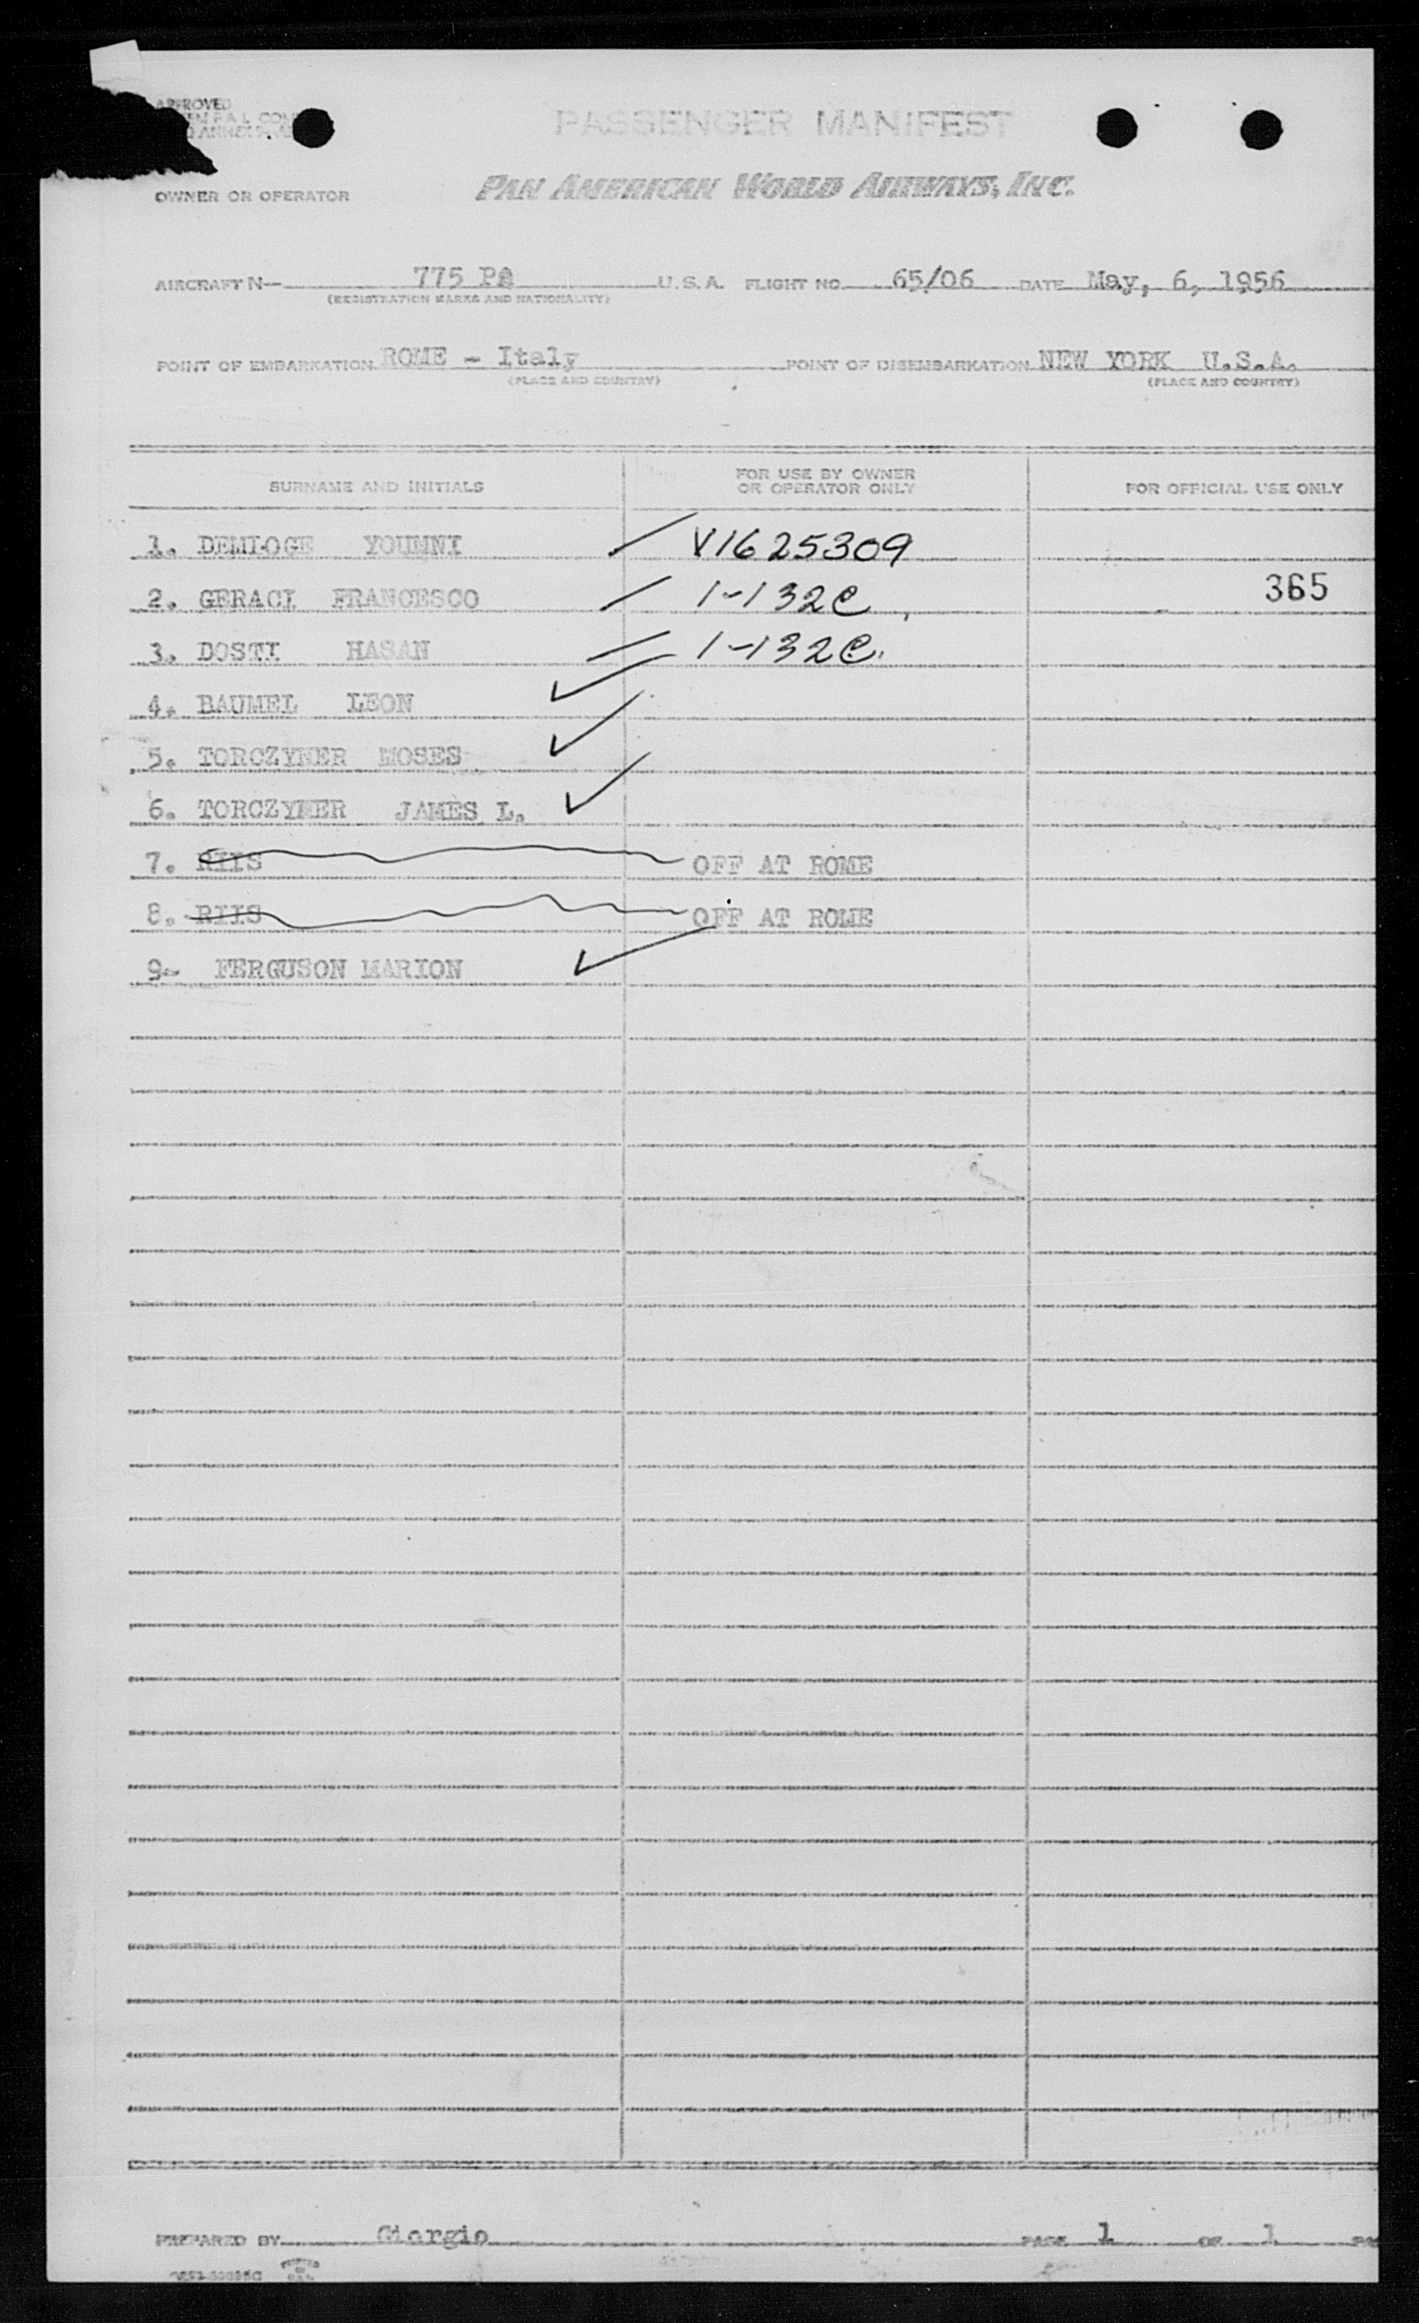 APPROVED
OWNER OR OPERATOR
PASSENGER MANIFEST
PAN AMERICAN WORLD AIRWAYS, INC.
AIRCRAFT N— 775 PA U. S. A. FLIGHT NO. 65/06 DATE May, 6, 1956
(REGISTRATION MARKS AND NATIONALITY)
POINT OF EMBARKATION ROME - Italy POINT OF DISEMBARKATION NEW YORK U.S.A.
(PLACE AND COUNTRY) (PLACE AND COUNTRY)
SURNAME AND INITIALS FOR USE BY OWNER OR OPERATOR ONLY FOR OFFICIAL USE ONLY
1. YOUMNI V1625309
2. GERACI FRANCESCO 1-132C 365
3. DOSTI HASAN 1-132C.
4. BAUMEL LEON
5. TORCZYNER MOSES
6. TORCZYNER JAMES L.
7. RIIS OFF AT ROME
8. RIIS OFF AT ROME
9- FERGUSON MARION
PREPARED BY Giorgio PAGE 1 OF 1